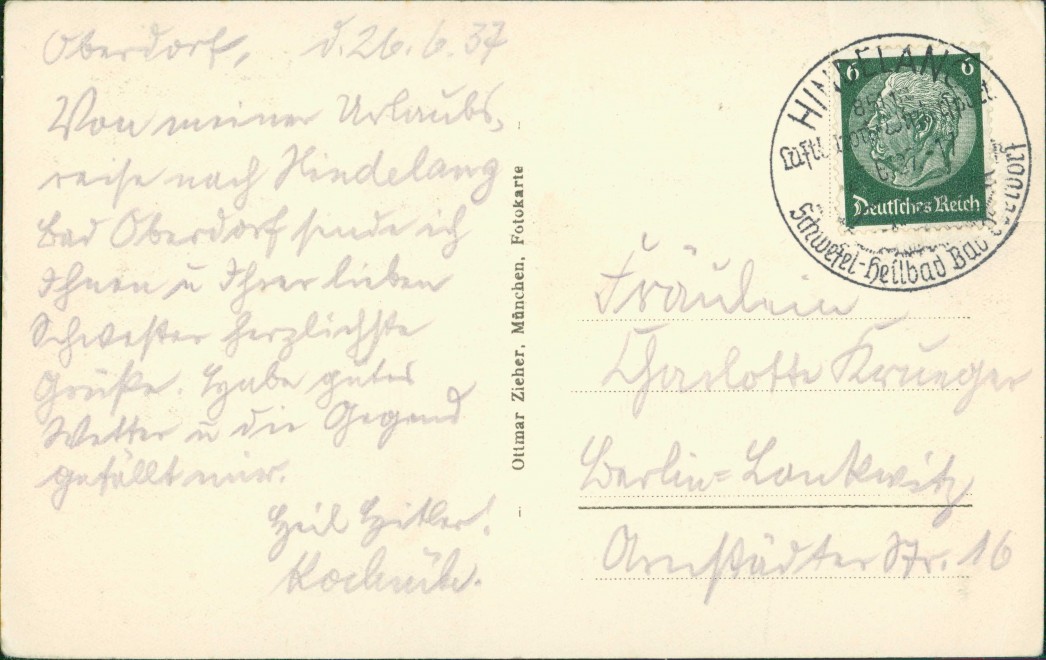 Oberdorf, d. 26. 6. 37
Von meiner Urlaubs-
reise nach Hindelang
Bad Oberdorf sende ich
Ihnen u Ihrer lieben
Schwester herzlichste
Grüße. Habe gutes
Wetter u die Gegend
gefällt mir.
Heil Hitler!
Ottmar Zieher, München, Fotokarte
HINDELANG
Schwefel-Heilbad Bad Oberdorf
6 6
Deutsches Reich
Fräulein
Charlotte Krueger
Berlin=Lankwitz
Arnstädter Str. 16